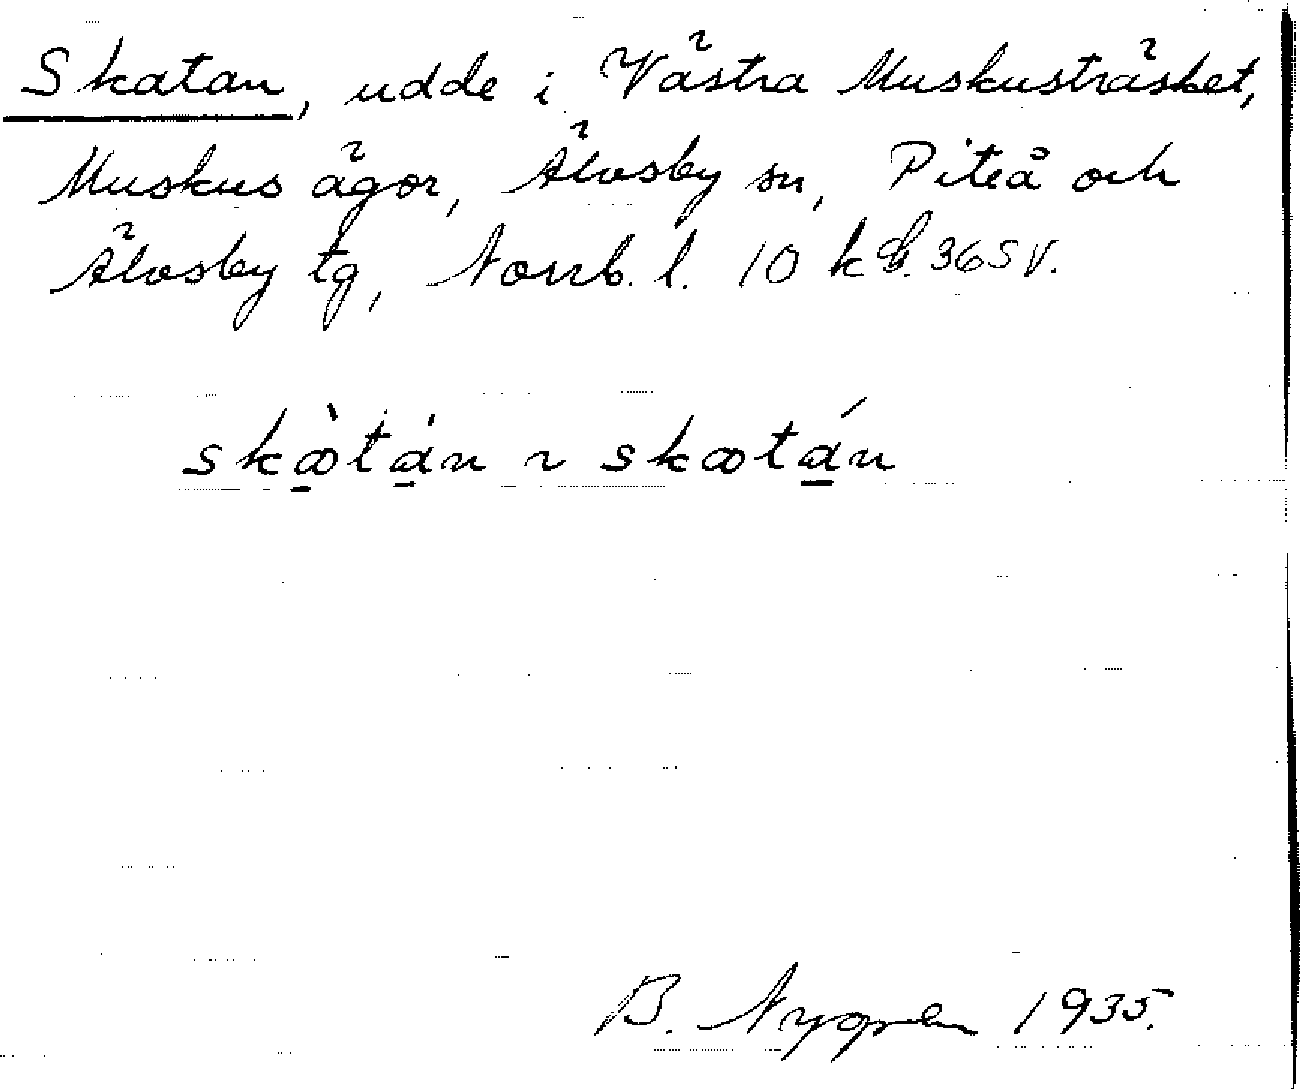 Skatan, udde i Västra Muskusträsket,
Muskus ägor, Älvsby sn, Piteå och
Älvsby tg, Norrb. l. 10 k G. 365 V.
skæ̀tán ~ skætán
B. Nygren 1935.